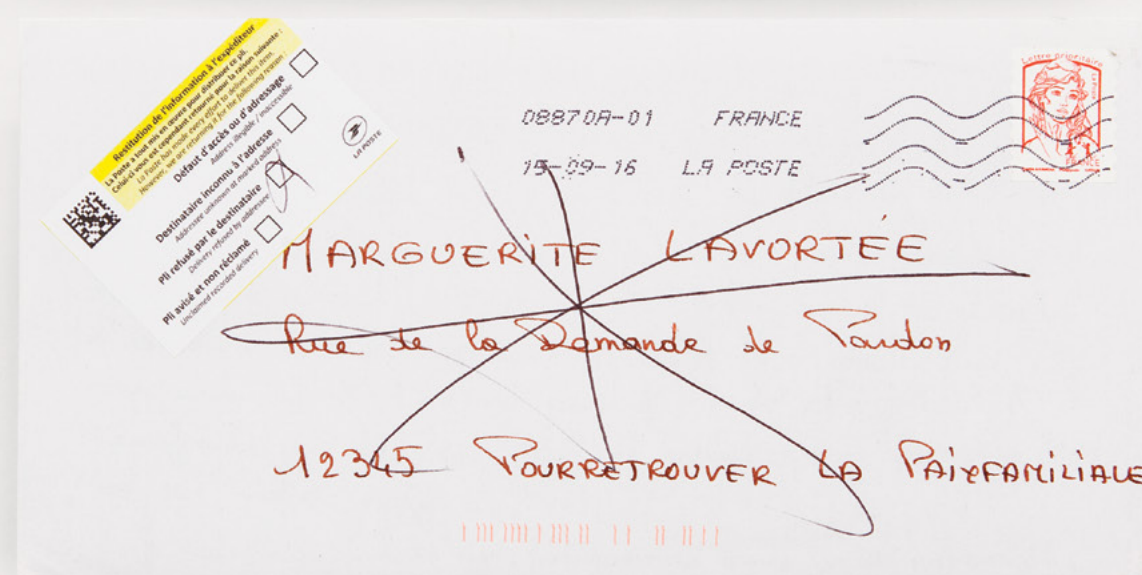 Restitution de l'information à l'expéditeur
La Poste a tout mis en œuvre pour distribuer ce pli.
Celui-ci vous est cependant retourné pour la raison suivante :
La Poste has made every effort to deliver this item.
However, we are returning it for the following reason :
Défaut d'accès ou d'adressage
Address illegible / inaccessible
Destinataire inconnu à l'adresse
Addressee unknown at marked address
Pli refusé par le destinataire
Delivery refused by addressee
Pli avisé et non réclamé
Unclaimed recorded delivery
LA POSTE
08870A-01 FRANCE
15-09-16 LA POSTE
Lettre prioritaire
FRANCE
MARGUERITE LAVORTÉE
Rue de la Demande de Pardon
12345 POURRETROUVER LA PAIXFAMILIALE